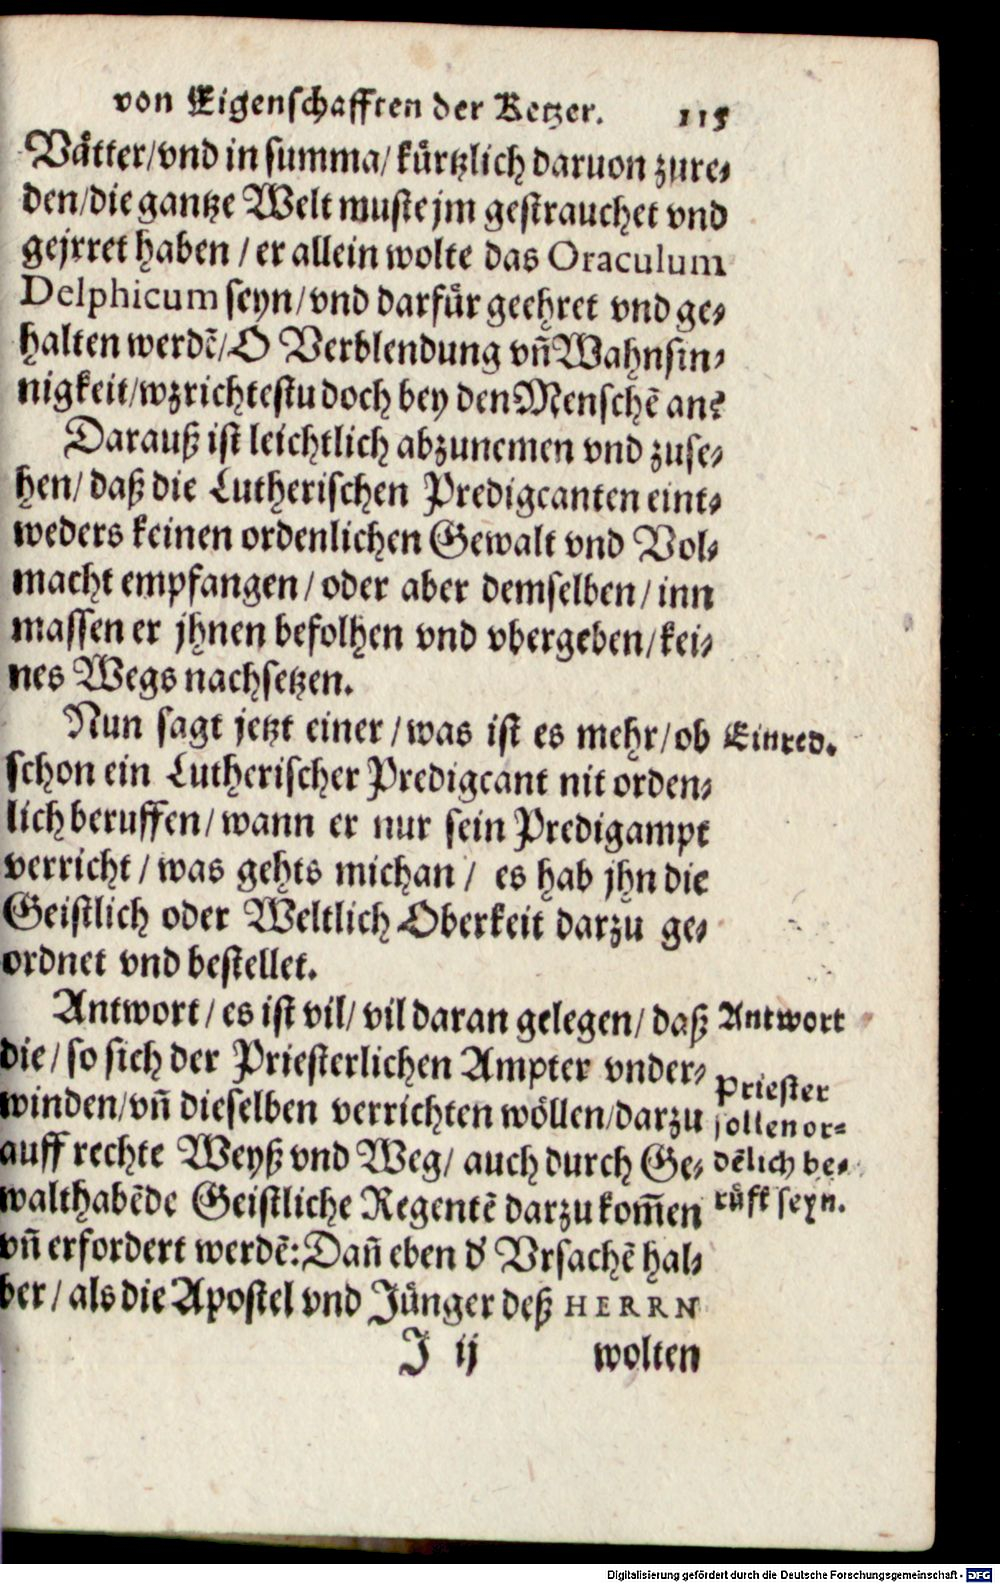 von Eigenschafften der Ketzer. 115
Vätter/ vnd in summa/ kürtzlich daruon zure⸗
den/ die gantze Welt muste jm gestrauchet vnd
gejrret haben / er allein wolte das Oraculum
Delphicum seyn/ vnd darfür geehret vnd ge⸗
halten werdẽ/ O Verblendung vñ Wahnsin⸗
nigkeit/ wz richtestu doch bey den Menschẽ an?
Darauß ist leichtlich abzunemen vnd zuse⸗
hen/ daß die Lutherischen Predigcanten eint⸗
weders keinen ordenlichen Gewalt vnd Vol⸗
macht empfangen/ oder aber demselben/ inn
massen er jhnen befolhen vnd vbergeben/ kei⸗
nes Wegs nachsetzen.
Nun sagt jetzt einer / was ist es mehr/ ob
Einred.
schon ein Lutherischer Predigcant nit orden⸗
lich beruffen/ wann er nur sein Predigampt
verricht / was gehts mich an / es hab jhn die
Geistlich oder Weltlich Oberkeit darzu ge⸗
ordnet vnd bestellet.
Antwort / es ist vil/ vil daran gelegen/ daß
Antwort
die / so sich der Priesterlichen Ampter vnder⸗
winden/ vñ dieselben verrichten wöllen/ darzu
auff rechte Weyß vnd Weg/ auch durch Ge⸗
walthabẽde Geistliche Regentẽ darzu kom̃en
vñ erfordert werdẽ: Dañ eben d' Vrsachẽ hal⸗
ber / als die Apostel vnd Jünger deß HERRN
Priester
sollen or⸗
dẽlich be⸗
rüfft seyn.
J ij wolten
Digitalisierung gefördert durch die Deutsche Forschungsgemeinschaft - DFG